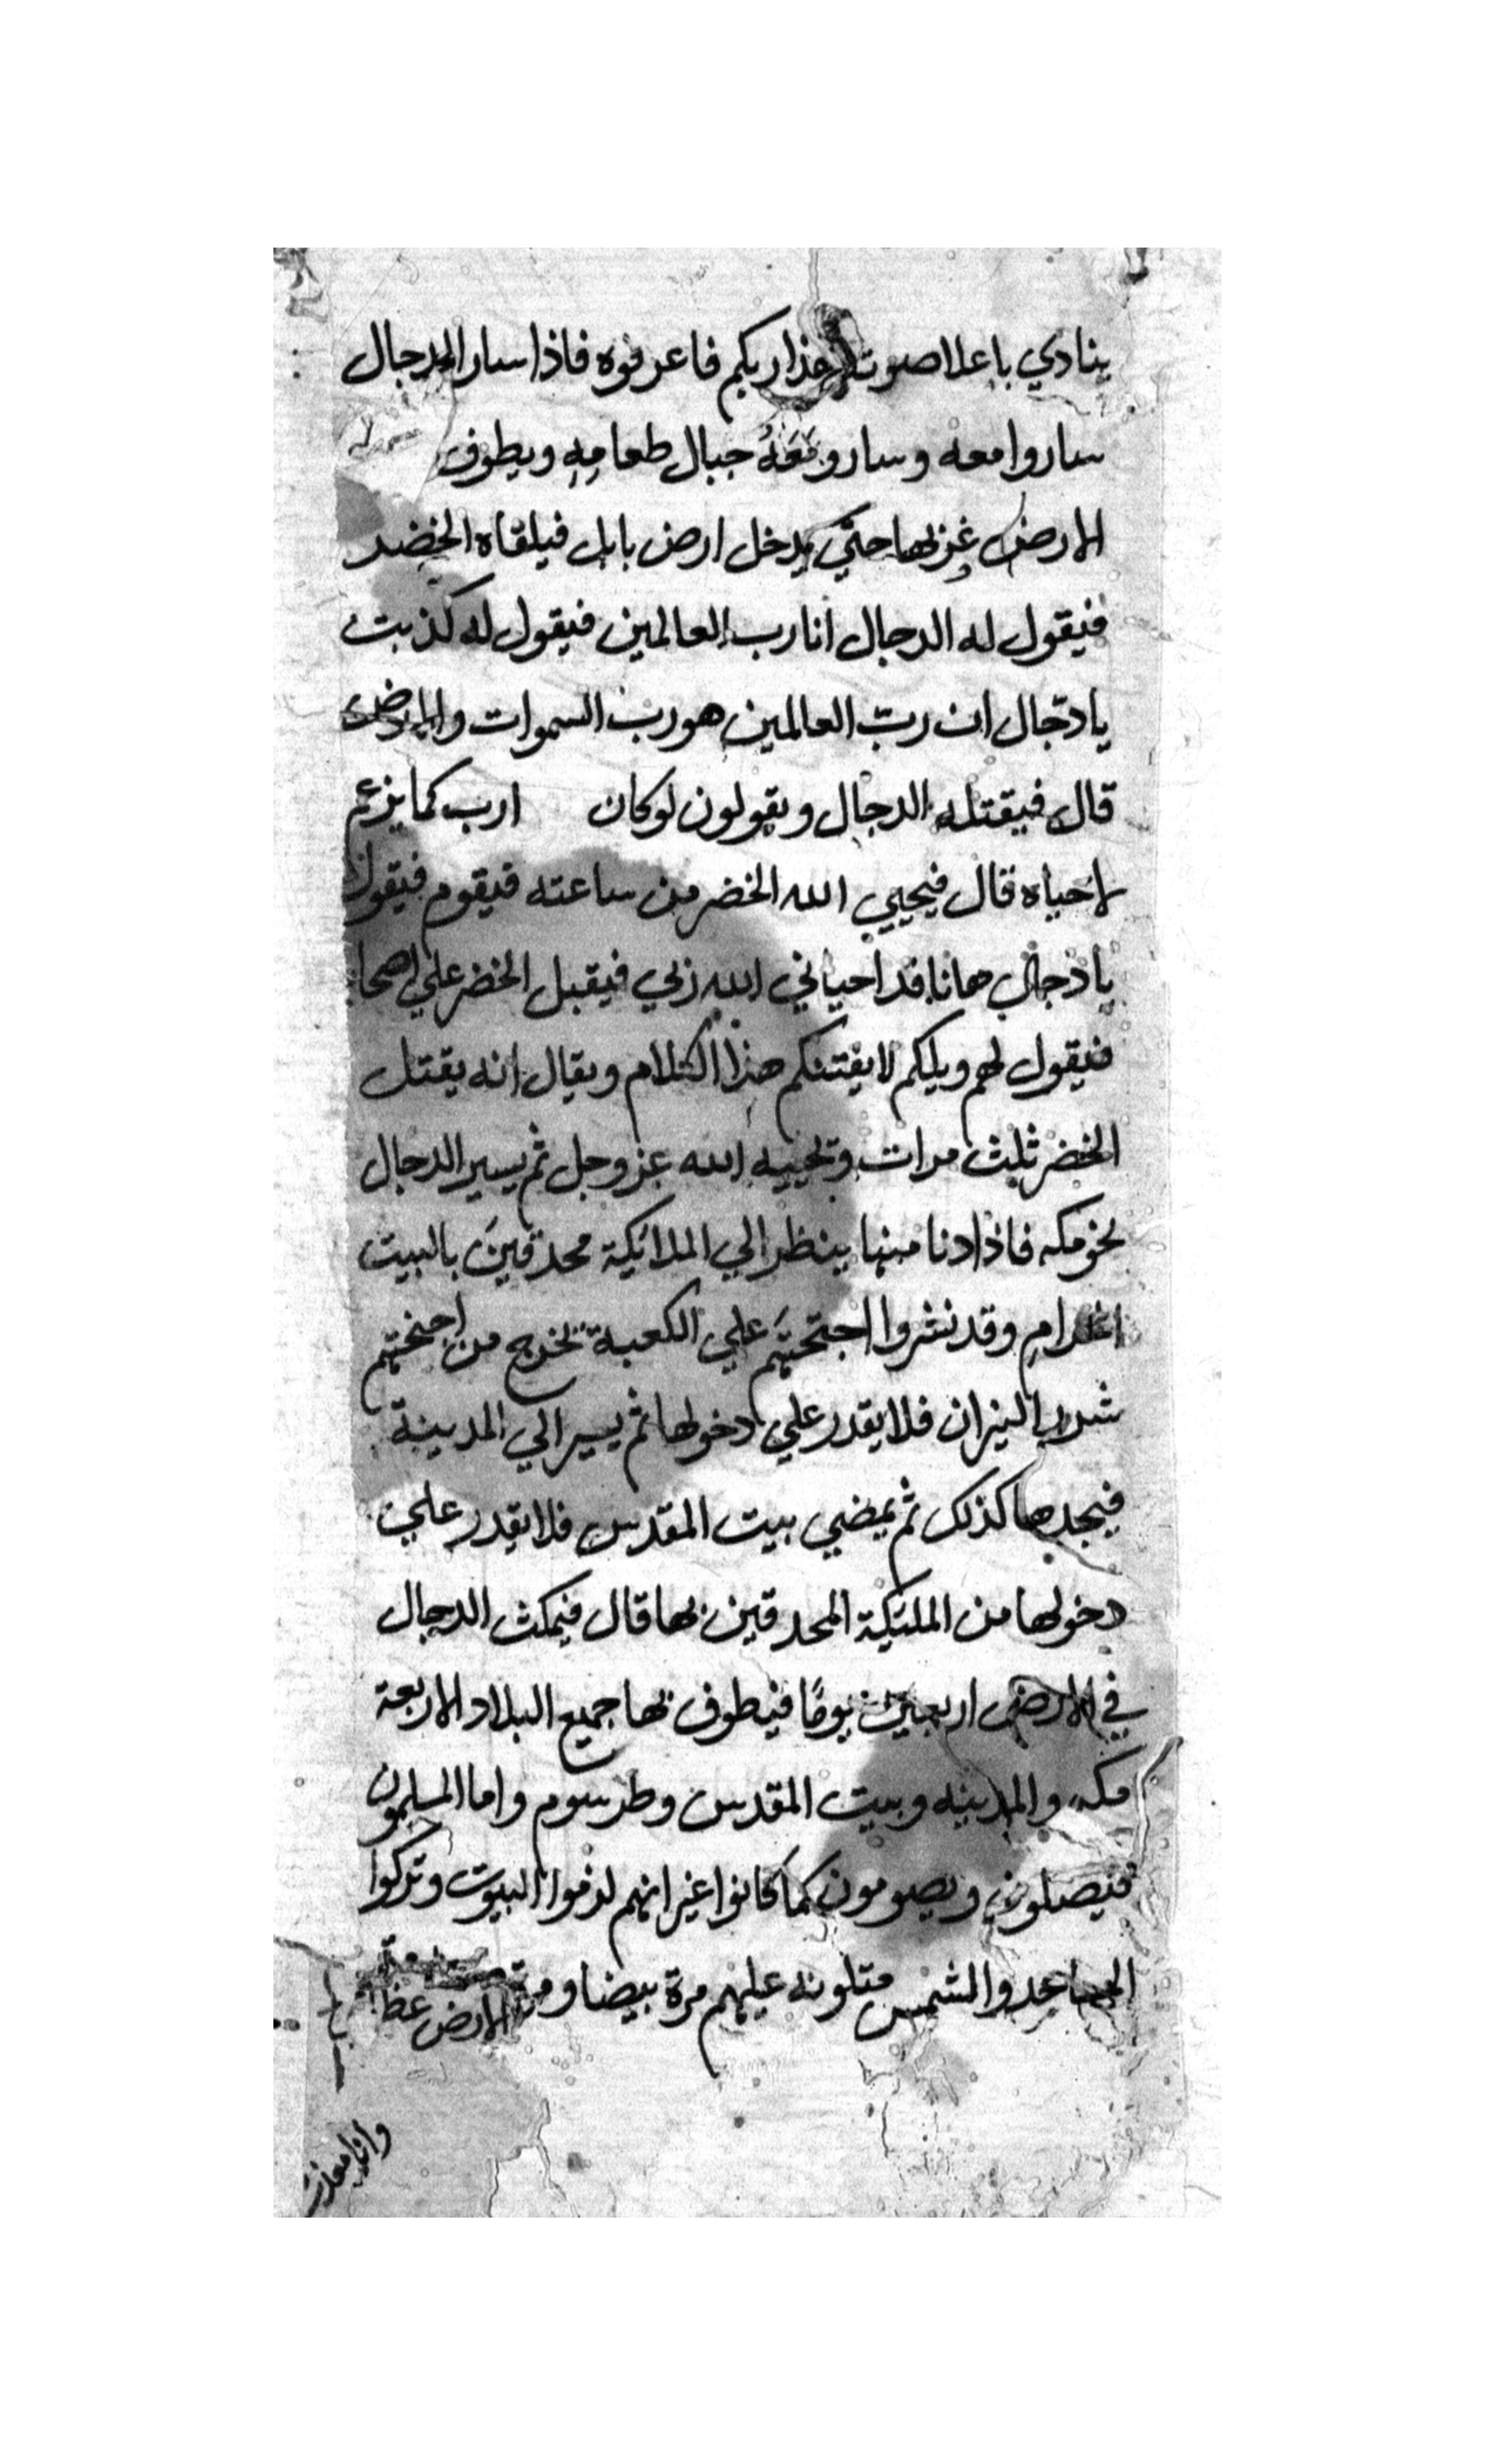 ينادي باعلا صوته هذا ربكم فاعرفوه فاذا سار الدجال
ساروا معه وسارو مَعَهُ جبال طعامِهِ ويطوف
الارض غربها حتي يدخل ارض بابل فيلقاه الخضر
فيقول له الدجال انا رب العالمين فيقول له كذبت
يا دجّال ان ربّ العالمين هو رب السموات والارض
قال فيقتله الدجال ويقولون لو كان ارب كما يزعم
لاحياه قال فيحيي الله الخضر من ساعته فيقوم فيقول
يا دجال هانا قد احياني الله ربي فيقبل الخضر علي اصحا
فيقول لهم ويلكم لا يفتنكم هذا الكلام ويقال انه يقتل
الخضر ثلث مرات ويحييه الله عز وجل ثم يسير الدجال
نحو مكه فاذا دنا منها ينظر الي الملائكة محدقينَ بالبيت
الحرامِ وقد نشروا اجنحتهَم علي الكعبة تخرج من اجنحتهم
شدب النيران فلا يقدر علي دخولها ثم يسير الي المدينة
فيجدها كذلك ثم يمضي بيت المقدس فلا يقدر علي
دخولها من الملئكة المحدقين بها قال فيمكث الدجال
في الارض اربعين يومًا فيطوف بها جميع البلاد الاربعة
مكه والمدينه وبيت المقدس وطرسوم واما المسلمون
فيصلون ويصومون كما كانوا غير انهم لزموا البيوت وتركوا
المساجد والشمس متلونه عليهم مرة بيضا و
الارض عظ